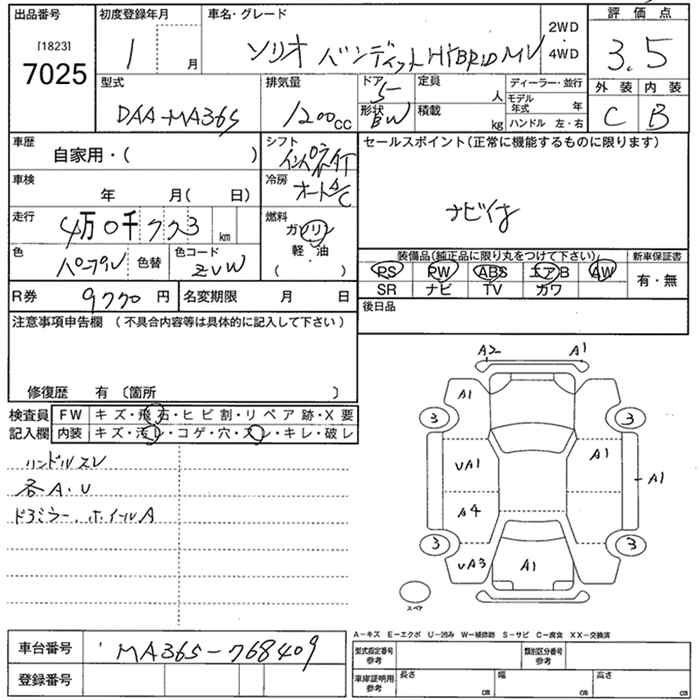 出品番号 初度登録年月 車名・グレード 2WD 評価点
[1823] 1 月 ソリオ バンディット HYBRID MV 4WD 3.5
7025
型式 排気量 ドア 定員 ディーラー・並行 外装 内装
DAA-MA36S 1200cc 5 人 モデル年式 年 C B
形状 BW 積載 kg ハンドル 左・右
車歴 シフト セールスポイント(正常に機能するものに限ります)
自家用・( ) インパネAT
車検 冷房 ナビ付
年 月( 日) オートA/C
走行 燃料
4万0千773km ガソリン
色 色替 色コード 軽・油
パープル ZVW ( )
装備品(純正品に限り丸をつけて下さい) 新車保証書
PS PW ABS エアB AW 有・無
SR ナビ TV カワ
R券 9770円 名変期限 月 日 後日品
注意事項申告欄 (不具合内容等は具体的に記入して下さい)
修復歴 有 〔箇所 〕
検査員 FW キズ・飛石・ヒビ割・リペア跡・X要
記入欄 内装 キズ・汚レ・コゲ・穴・スレ・キレ・破レ
ハンドルスレ
各A・U
ドアミラー、ホイールA
A2 A1
A1
3 3
UA1 A1 A1
A4
3 3
UA3 A1
スペア
A-キズ E-エクボ U-凹み W-補修跡 S-サビ C-腐食 XX-交換済
車台番号 MA36S-768409
登録番号
型式指定番号 参考 類別区分番号 参考
車庫証明用 参考 長さ cm 幅 cm 高さ cm